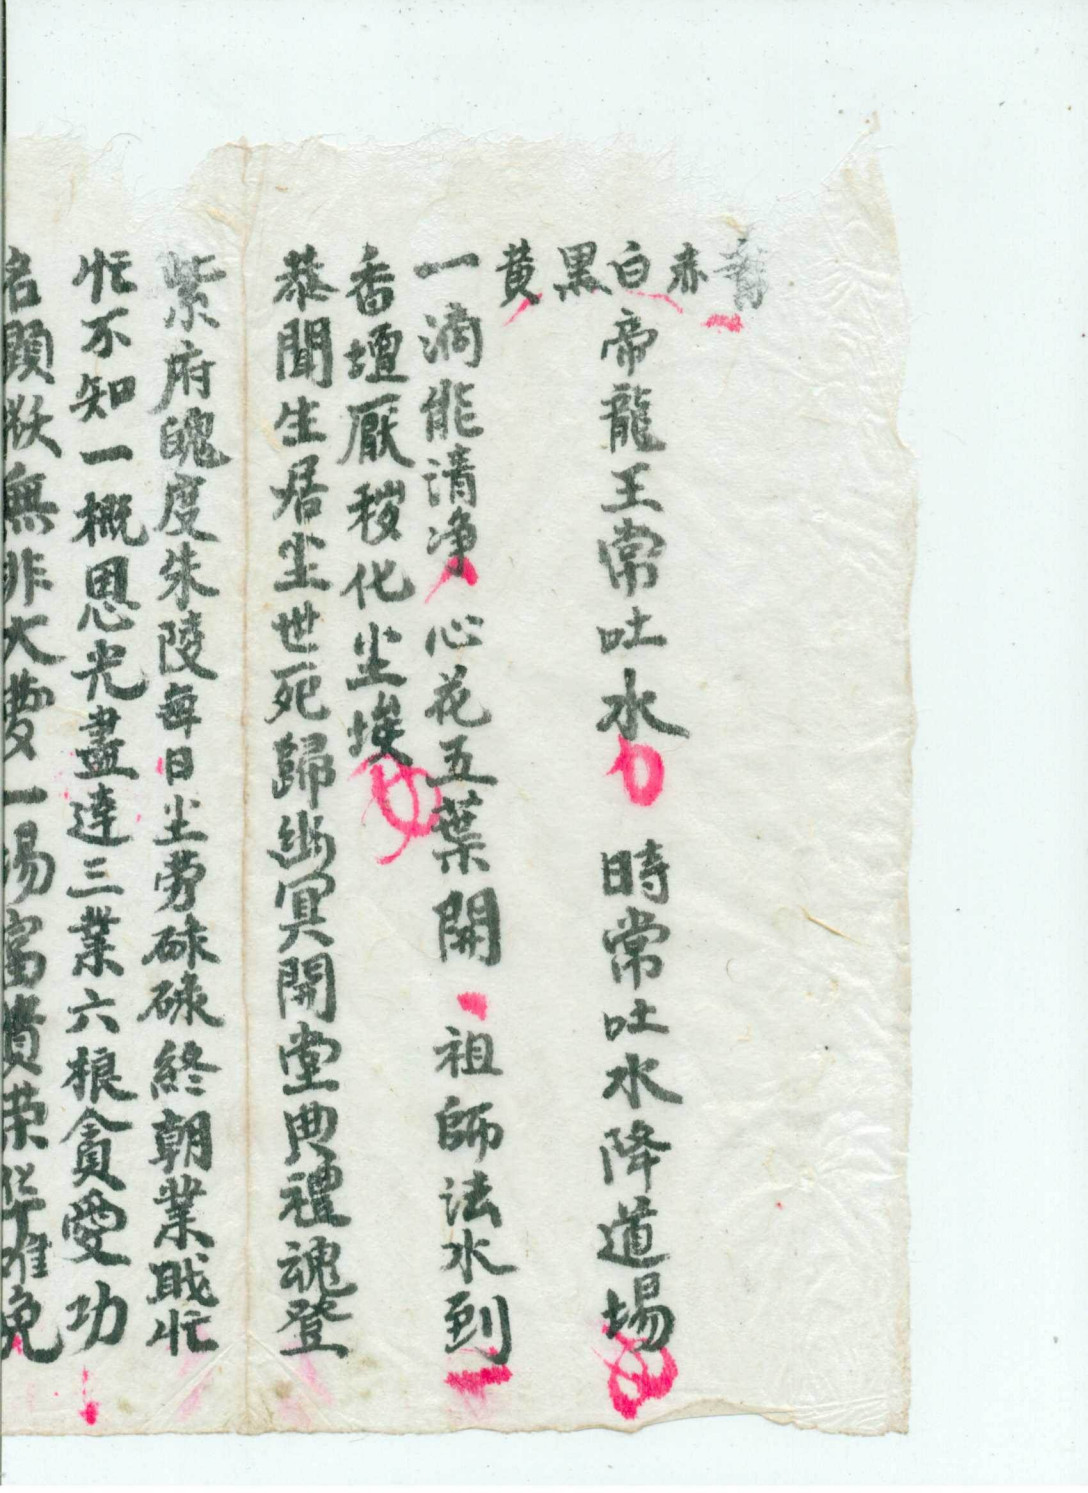 青赤白黑黃
帝龍王常吐水 時常吐水降道場
一滴能清净 心花五葉開 祖師法水到
香壇厭穢化尘埃
恭聞生居尘世死歸幽冥開堂典禮魂登
紫府魄度朱陵每日尘劳碌碌終朝業戝忙
忙不知一概恩光盡達三業六根貪愛功
名顕狀無非大夢一場富貴荣华难免